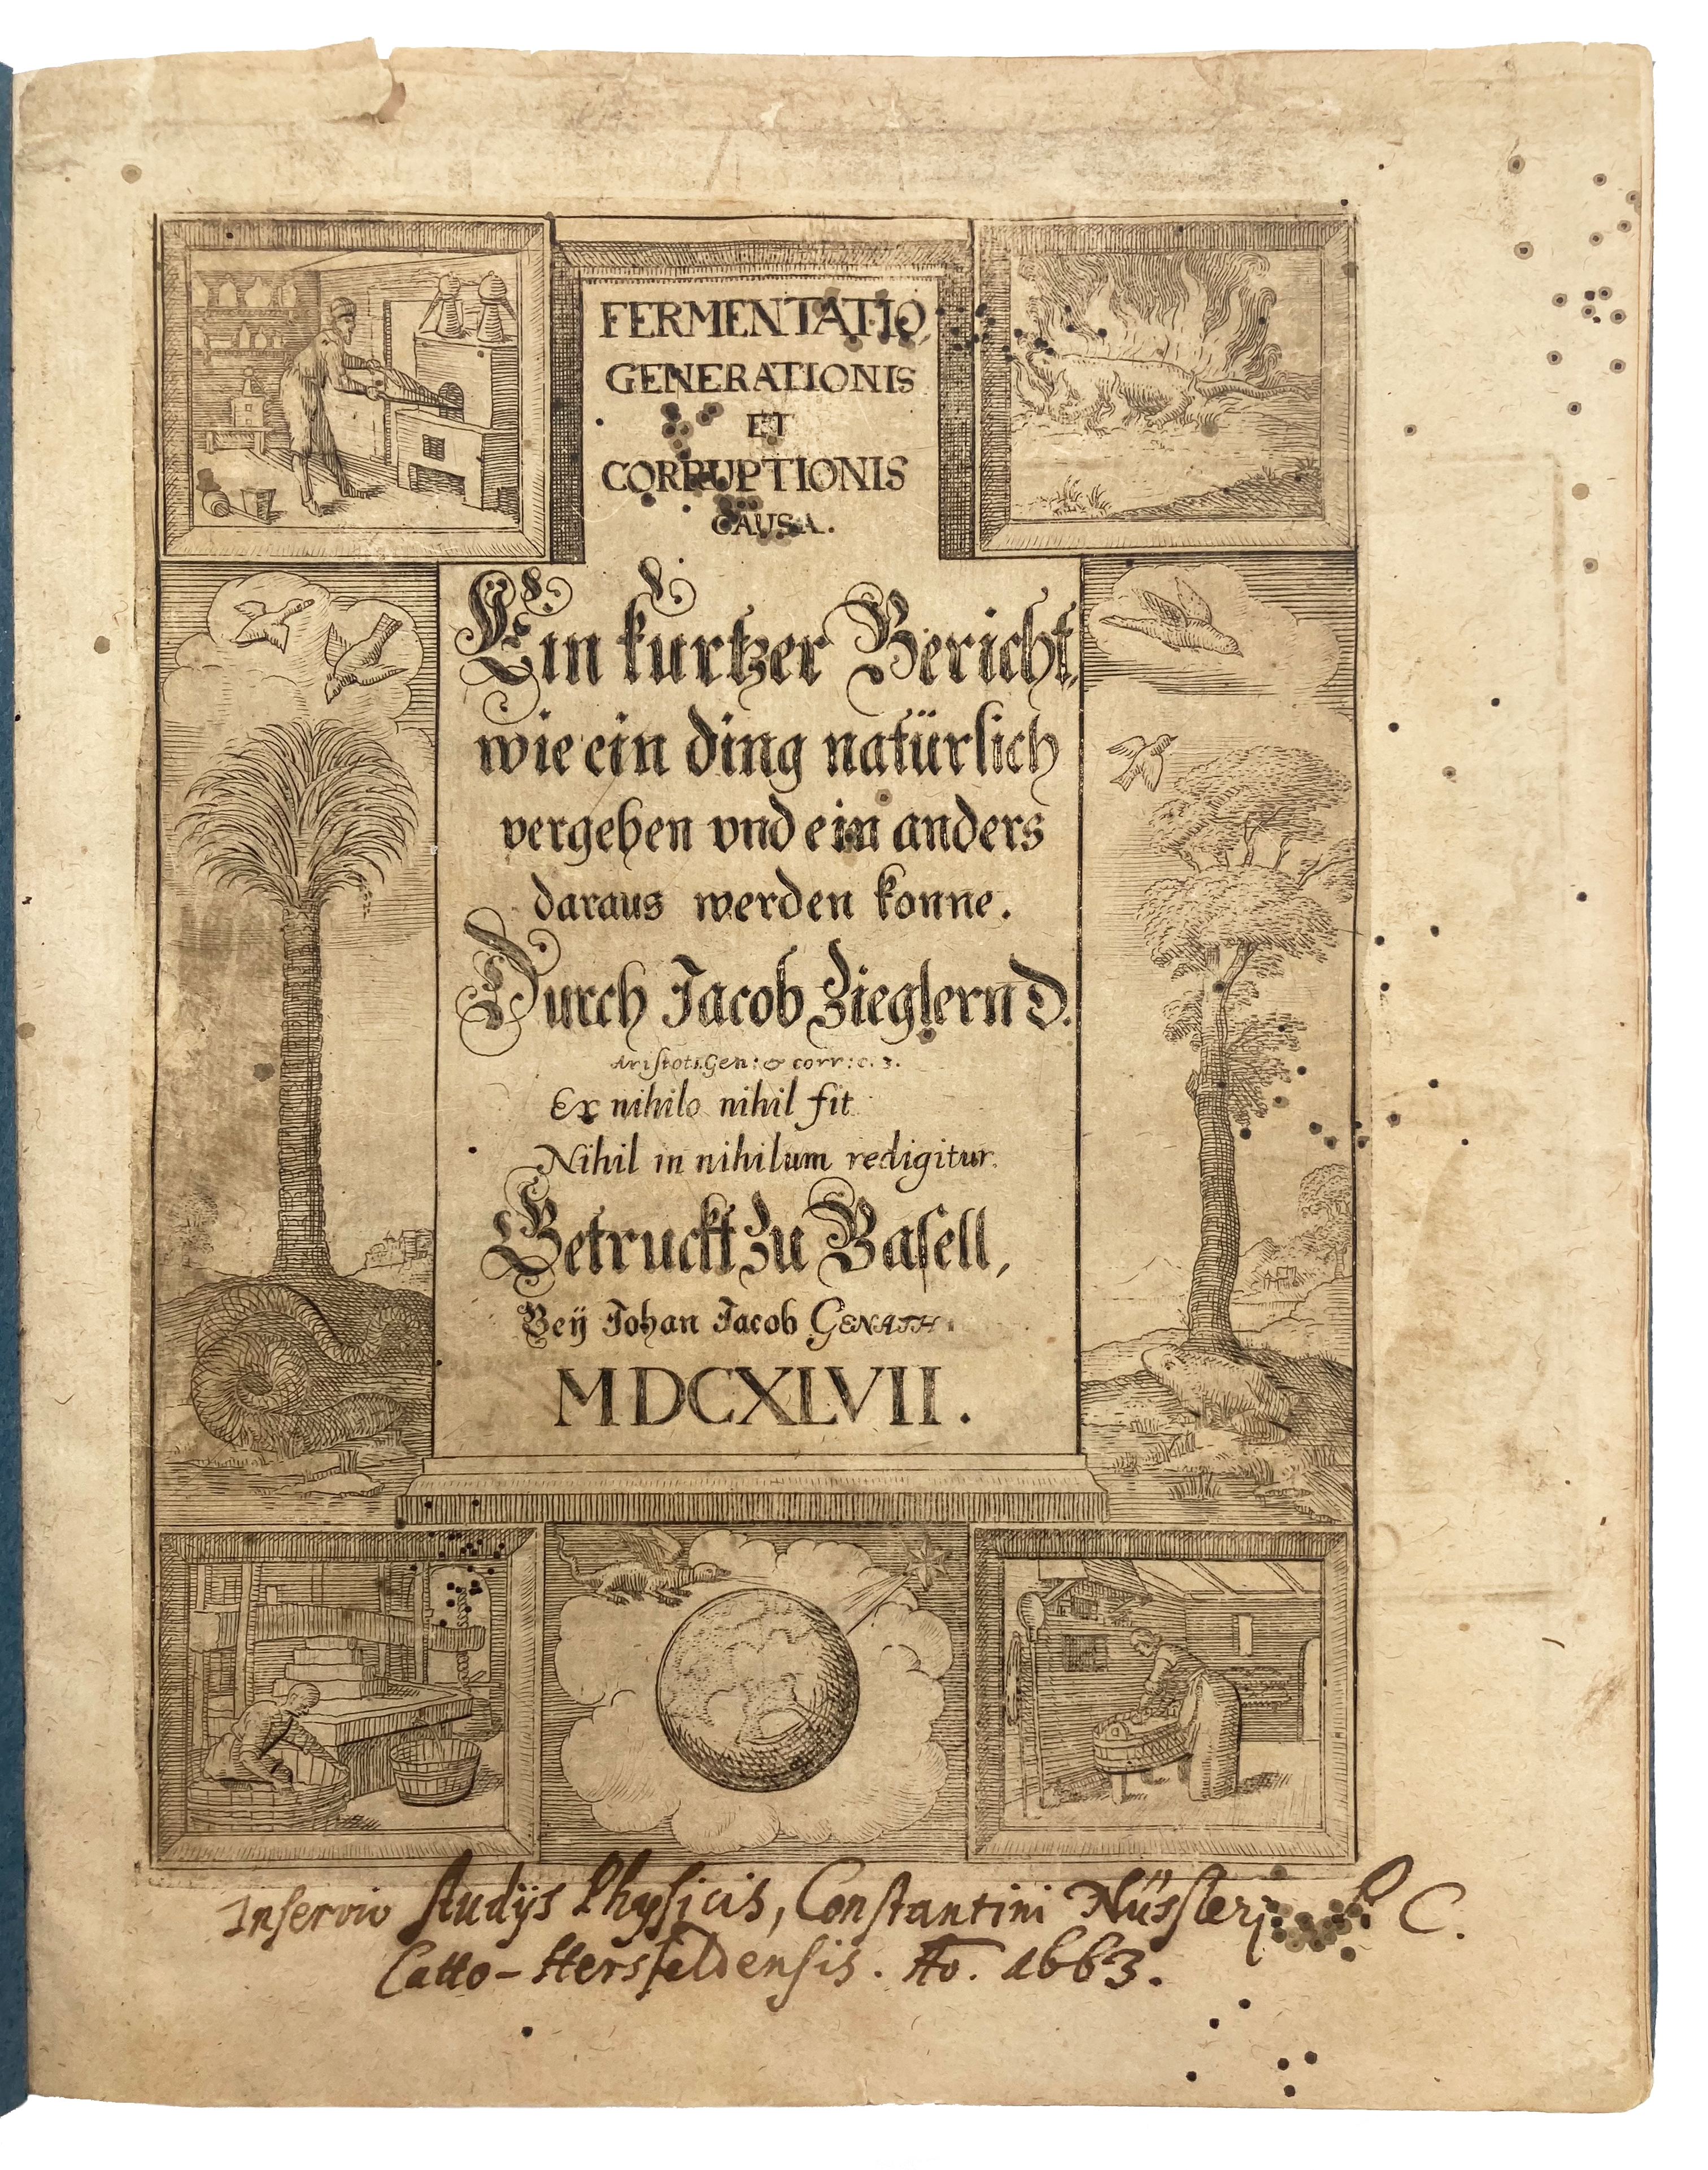 FERMENTATIO
GENERATIONIS
ET
CORRUPTIONIS
CAUSA.
Ein kurtzer Bericht,
wie ein ding natürlich
vergehen vnd ein anders
daraus werden konne.
Durch Jacob Zieglern D.
Aristot:1.Gen: & corr: c. 3.
Ex nihilo nihil fit
Nihil in nihilum redigitur.
Getruckt zu Basell,
Beÿ Johan Jacob GENATH.
MDCXLVII.
Inservio studijs Physicis, Constantini Nüssleri C.
Catto-Hersfeldensis. Ao. 1663.